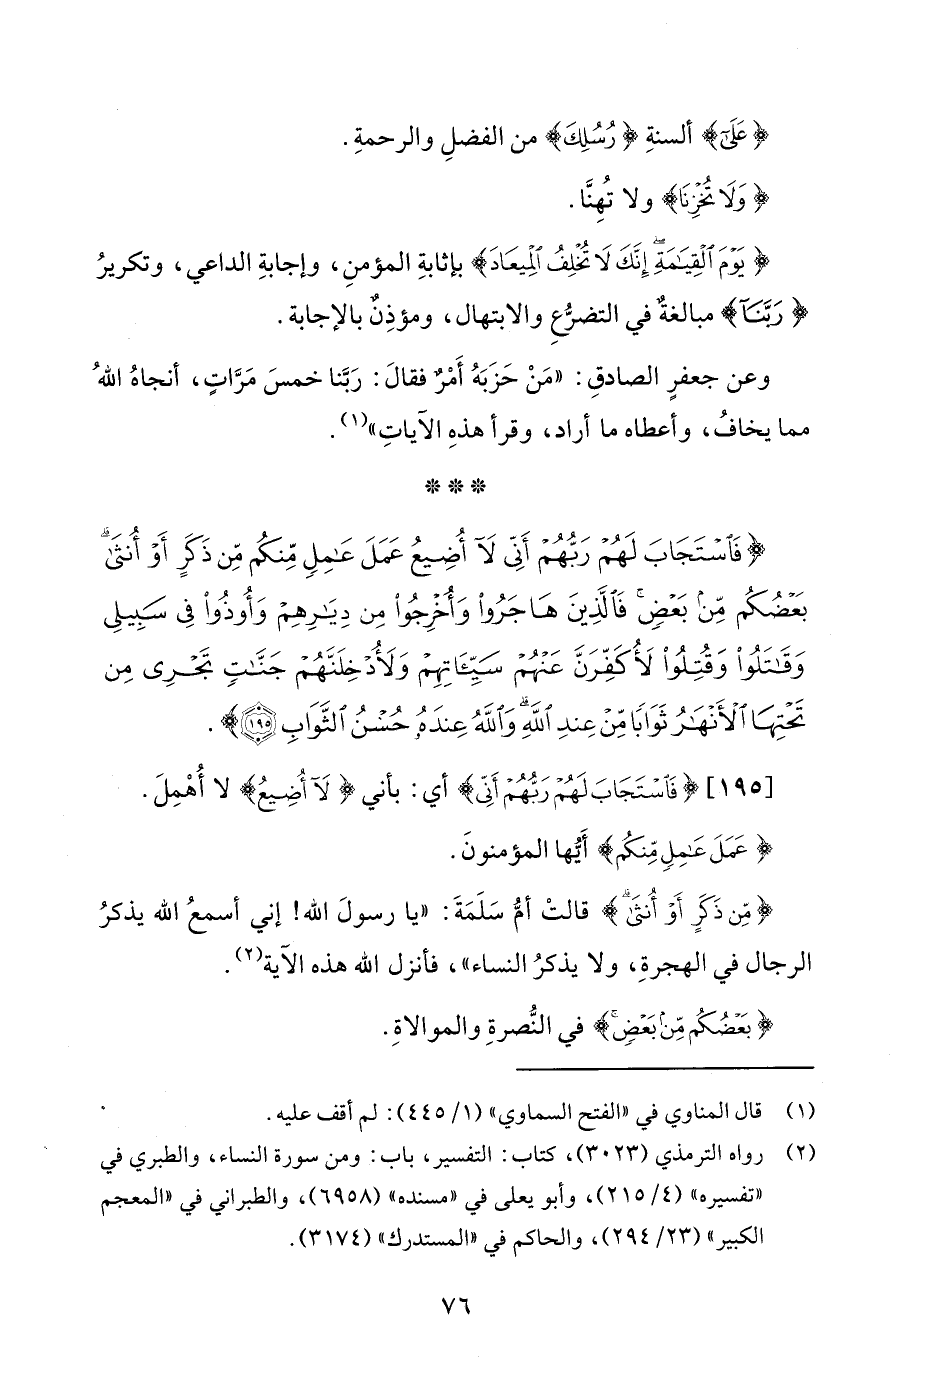 ﴿عَلَىٰ﴾ ألسنةِ ﴿رُسُلِكَ﴾ من الفضلِ والرحمةِ.
﴿وَلَا تُخْزِنَا﴾ ولا تُهِنَّا.
﴿يَوْمَ ٱلْقِيَٰمَةِۖ إِنَّكَ لَا تُخْلِفُ ٱلْمِيعَادَ﴾ بإثابةِ المؤمنِ، وإجابةِ الداعي، وتكريرُ
﴿رَبَّنَآ﴾ مبالغةٌ في التضرُّعِ والابتهال، ومؤذِنٌ بالإجابة.
وعن جعفرٍ الصادقِ: «مَنْ حَزَبَهُ أَمْرٌ فقالَ: رَبَّنا خمسَ مَرَّاتٍ، أنجاهُ اللهُ
مما يخافُ، وأعطاه ما أراد، وقرأ هذهِ الآياتِ»(١).
* * *
﴿فَٱسْتَجَابَ لَهُمْ رَبُّهُمْ أَنِّى لَآ أُضِيعُ عَمَلَ عَٰمِلٍ مِّنكُم مِّن ذَكَرٍ أَوْ أُنثَىٰۖ
بَعْضُكُم مِّنۢ بَعْضٍۖ فَٱلَّذِينَ هَاجَرُوا۟ وَأُخْرِجُوا۟ مِن دِيَٰرِهِمْ وَأُوذُوا۟ فِى سَبِيلِى
وَقَٰتَلُوا۟ وَقُتِلُوا۟ لَأُكَفِّرَنَّ عَنْهُمْ سَيِّـَٔاتِهِمْ وَلَأُدْخِلَنَّهُمْ جَنَّٰتٍ تَجْرِى مِن
تَحْتِهَا ٱلْأَنْهَٰرُ ثَوَابًا مِّنْ عِندِ ٱللَّهِۗ وَٱللَّهُ عِندَهُۥ حُسْنُ ٱلثَّوَابِ ١٩٥﴾.
[١٩٥] ﴿فَٱسْتَجَابَ لَهُمْ رَبُّهُمْ أَنِّى﴾ أي: بأني ﴿لَآ أُضِيعُ﴾ لا أُهْمِلَ.
﴿عَمَلَ عَٰمِلٍ مِّنكُم﴾ أَيُّها المؤمنونَ.
﴿مِّن ذَكَرٍ أَوْ أُنثَىٰۖ﴾ قالتْ أمُّ سَلَمَةَ: «يا رسولَ الله! إني أسمعُ الله يذكرُ
الرجال في الهجرةِ، ولا يذكرُ النساء»، فأنزل الله هذه الآية(٢).
﴿بَعْضُكُم مِّنۢ بَعْضٍۖ﴾ في النُّصرةِ والموالاةِ.
(١) قال المناوي في «الفتح السماوي» (١/ ٤٤٥): لم أقف عليه.
(٢) رواه الترمذي (٣٠٢٣)، كتاب: التفسير، باب: ومن سورة النساء، والطبري في
«تفسيره» (٤/ ٢١٥)، وأبو يعلى في «مسنده» (٦٩٥٨)، والطبراني في «المعجم
الكبير» (٢٣/ ٢٩٤)، والحاكم في «المستدرك» (٣١٧٤).
٧٦